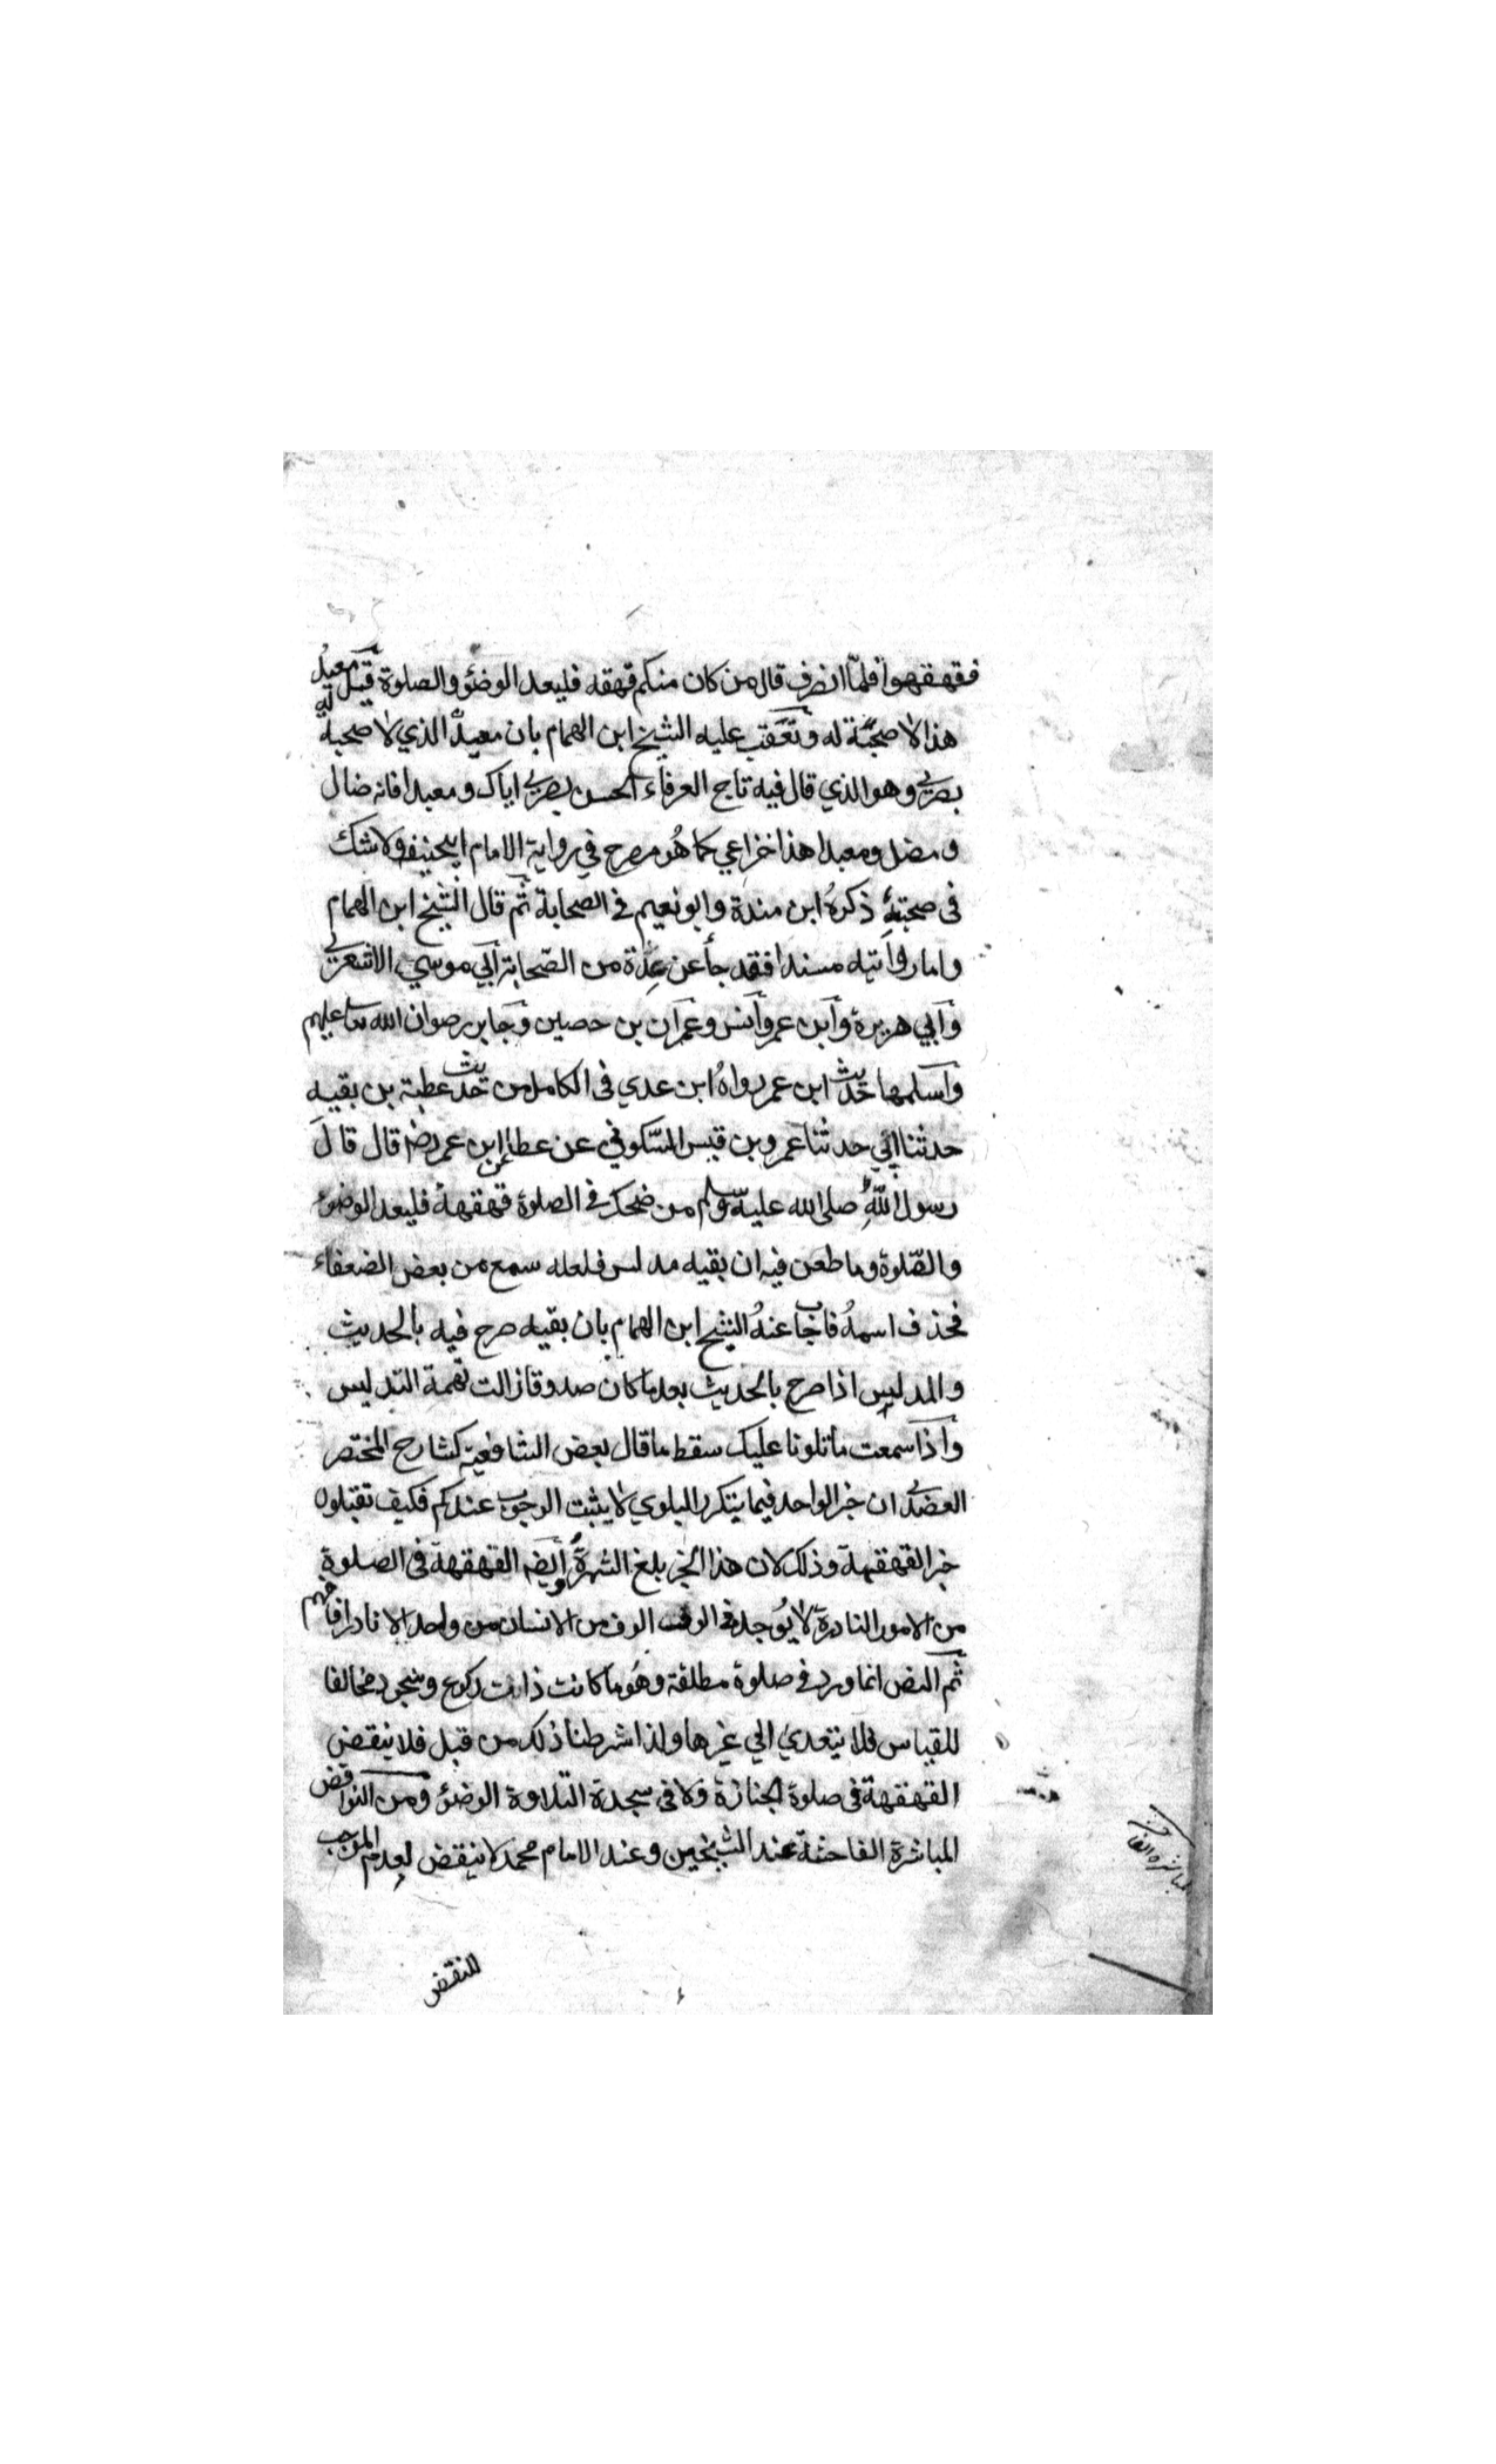 فقهقهوا فلمّا انصرف قال من كان منكم قهقه فليعد الوضؤ والصلوة قيل معبد
هذا لا صحبة له وتعقب عليه الشيخ ابن الهمام بان معبدا الذي لا صحبة له
بصري وهو الذي قال فيه تاج العرفاء الحسن بصري اياك ومعبدا فانه ضال
ومضل ومعبدا هذا خزاعي كما هو مصرح في رواية الامام ابيحنيفه ولا شك
في صحبته ذكره ابن مندة وابو نعيم في الصحابة ثم قال الشيخ ابن الهمام
واما روايته مسندا فقد جأ عن عدة من الصحابة ابي موسي الاشعري
وابي هريرة وابن عمر وانس وعمران بن حصين وجابر رضوان الله تعا عليهم
واسلمها حديث ابن عمر رواه ابن عدي في الكامل من حديث عطية بن بقيه
حدثنا ابي حدثنا عمرو بن قيس السكوني عن عطا عن ابن عمر رضـ قال قال
رسول الله صلى الله عليه وسلم من ضحك في الصلوة قهقهة فليعد الوضؤ
والصّلوة وما طعن فيه ان بقيه مدلس فلعله سمع من بعض الضعفاء
فحذف اسمه فاجاب عنه الشيخ ابن الهمام بان بقيه صرح فيه بالحديث
والمدليس اذا صرح بالحديث بعد ما كان صدوقا زالت تهمة التدليس
واذا سمعت ما تلونا عليك سقط ما قال بعض الشافعية كشارح المختصر
العضدي ان خبر الواحد فيما يتكرر البلوي لا يثبت الوجوب عندكم فكيف تقبلون
خبر القهقهة وذلك لان هذا الخبر بلغ الشهرة وايضه القهقهة في الصلوة
من الامور النادرة لا يوجد في الوقت الوف من الانسان من واحد الا نادرا فافهم
ثم النص انما ورد في صلوة مطلقة وهو ما كانت ذات ركوع وسجود مخالفا
للقياس فلا يتعدي الي غيرها ولذا شرطنا ذلك من قبل فلا ينقض
القهقهة في صلوة الجنازة ولا في سجدة التلاوة الوضؤ ومن النواقض
المباشرة الفاحشة عند الشيخين وعند الامام محمد لا ينقض لعدم الموجب
للنقض